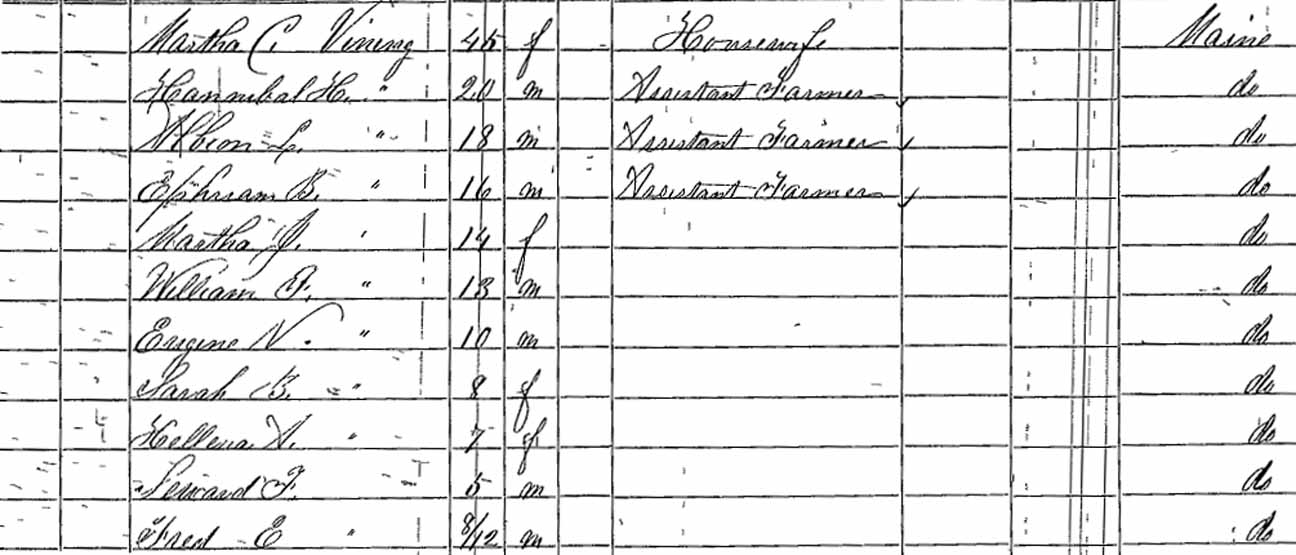 Martha C. Vining 45 f Housewife Maine
Hannibal H. " 20 m Assistant Farmer do
Albion L. " 18 m Assistant Farmer do
Ephraim B. " 16 m Assistant Farmer do
Martha J. " 14 f do
William F. " 13 m do
Eugene N. " 10 m do
Sarah B. " 8 f do
Hellena A. " 7 f do
Seward F. 5 m do
Fred E " 8/12 m do